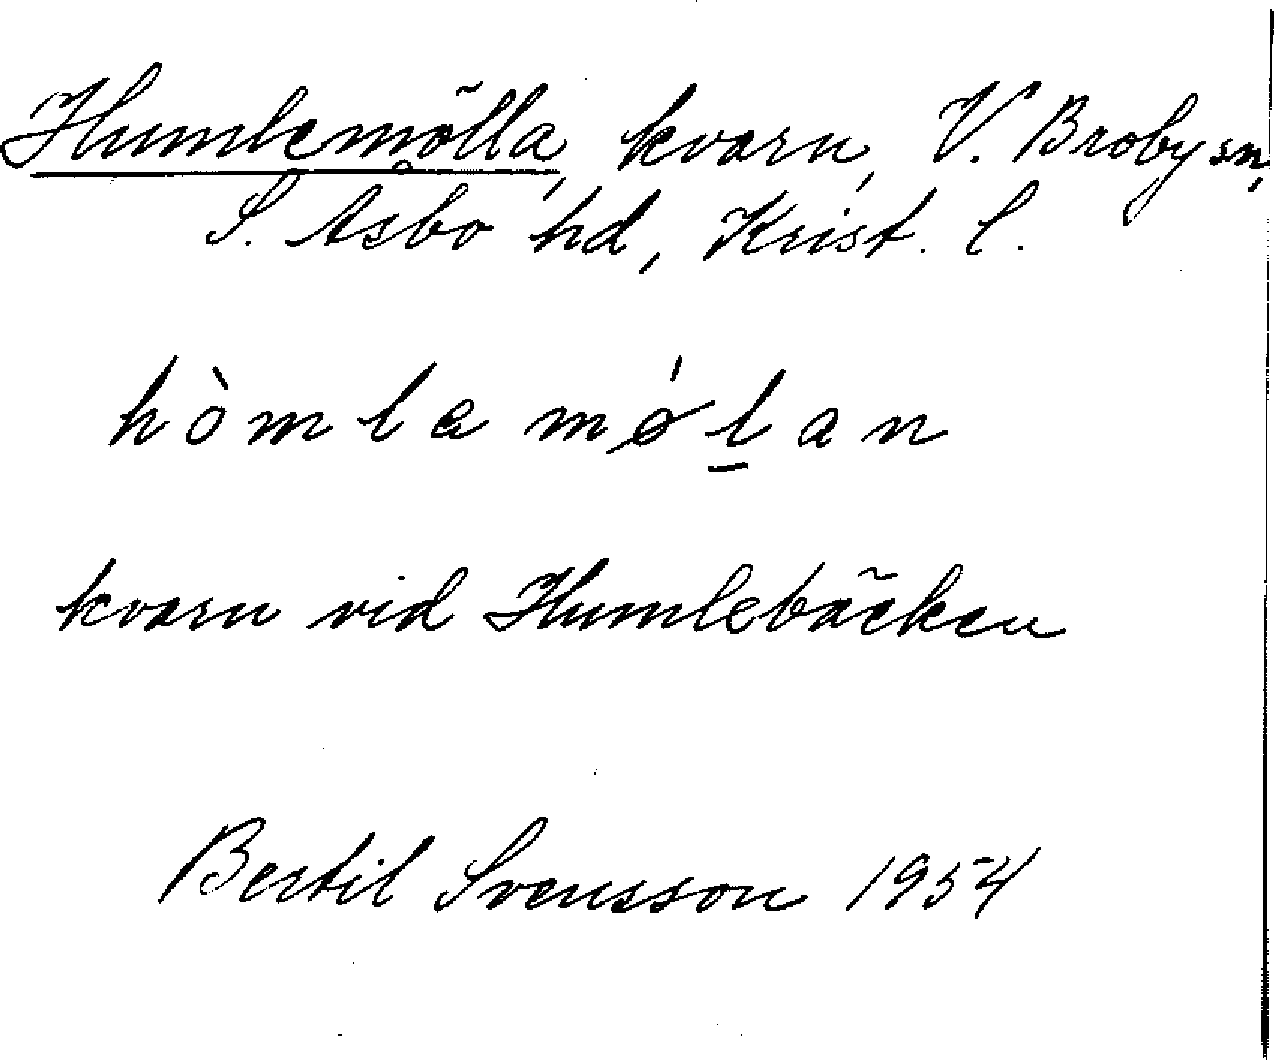 Humlemölla, kvarn, V. Broby sn,
S. Åsbo hd, Krist. l.
hòmlamǿl̠an
kvarn vid Humlebäcken
Bertil Svensson 1954